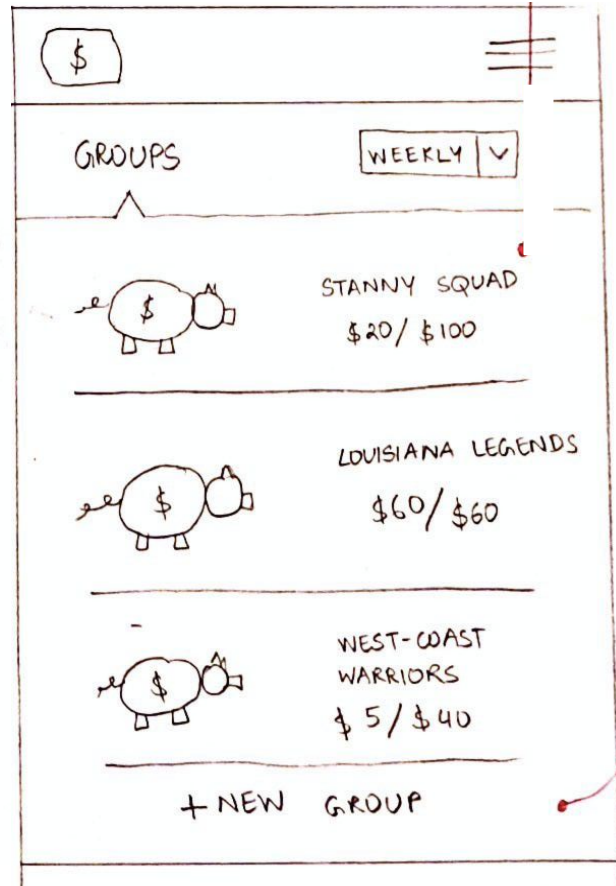 $
GROUPS
WEEKLY
$
STANNY SQUAD
$20/$100
$
LOUISIANA LEGENDS
$60/$60
$
WEST-COAST
WARRIORS
$5/$40
+ NEW GROUP